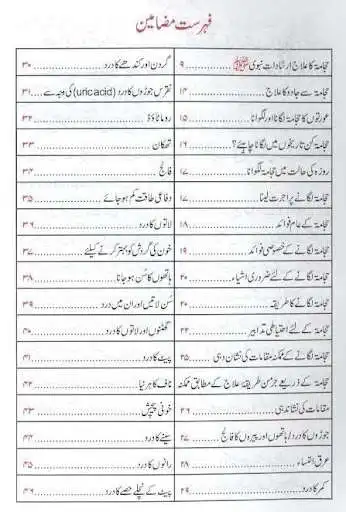 فہرست مضامین
حجامۃ کا علاج ارشادات نبوی ﷺ ۹
حجامۃ سے جادو کا علاج ۱۴
عورتوں کا حجامۃ لگانا اور لگوانا ۱۵
حجامۃ کن تاریخوں میں لگانا چاہیئے؟ ۱۶
روزہ کی حالت میں حجامۃ لگوانا ۱۷
حجامۃ لگانے پر اجرت لینا ۱۷
حجامۃ کے عام فوائد ۱۸
حجامۃ لگانے کے خصوصی فوائد ۱۹
حجامۃ لگانے کے لئے ضروری اشیاء ۲۰
حجامۃ لگانے کا طریقہ ۲۰
حجامۃ کے لئے احتیاطی تدابیر ۲۲
حجامۃ لگانے کے ممکنہ مقامات کی نشان دہی ۲۵
حجامۃ کے ذریعے جرمن طریقۂ علاج کے مطابق ممکنہ
مقامات کی نشاندہی ۲۶
جوڑوں کا درد/ہاتھوں اور پیروں کا فالج ۲۷
عرق النساء ۲۸
کمر کا درد ۲۹
گردن اور کندھے کا درد ۳۰
نقرس جوڑوں کا درد (uricacid) کی وجہ سے ۳۱
روماٹاؤڈ ۳۲
تھکان ۳۳
فالج ۳۴
دفاعی طاقت کم ہو جائے ۳۵
لاتوں کا درد ۳۶
خون کی گردش کو بہتر کرنے کیلئے ۳۷
ہاتھوں کا سُن ہو جانا ۳۸
سُن لاتیں اور ان میں درد ۳۹
گھٹنوں اور لاتوں کا درد ۴۰
پیٹ کا درد ۴۱
ناف کا ہرنیا ۴۲
خونی پیچش ۴۳
سینے کا درد ۴۴
رانوں کا درد ۴۵
پیٹ کے نچلے حصے کا درد ۴۶